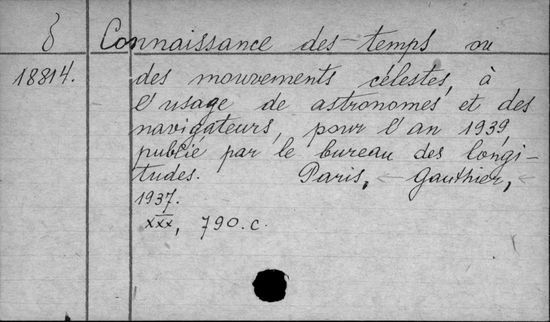 δ Connaissance des temps ou
18814. des mouvements célestes, à
l'usage de astronomes et des
navigateurs, pour l'an 1939,
publie par le bureau des longi-
tudes. Paris, Gauthier,
1937.
XXX, 790.c.